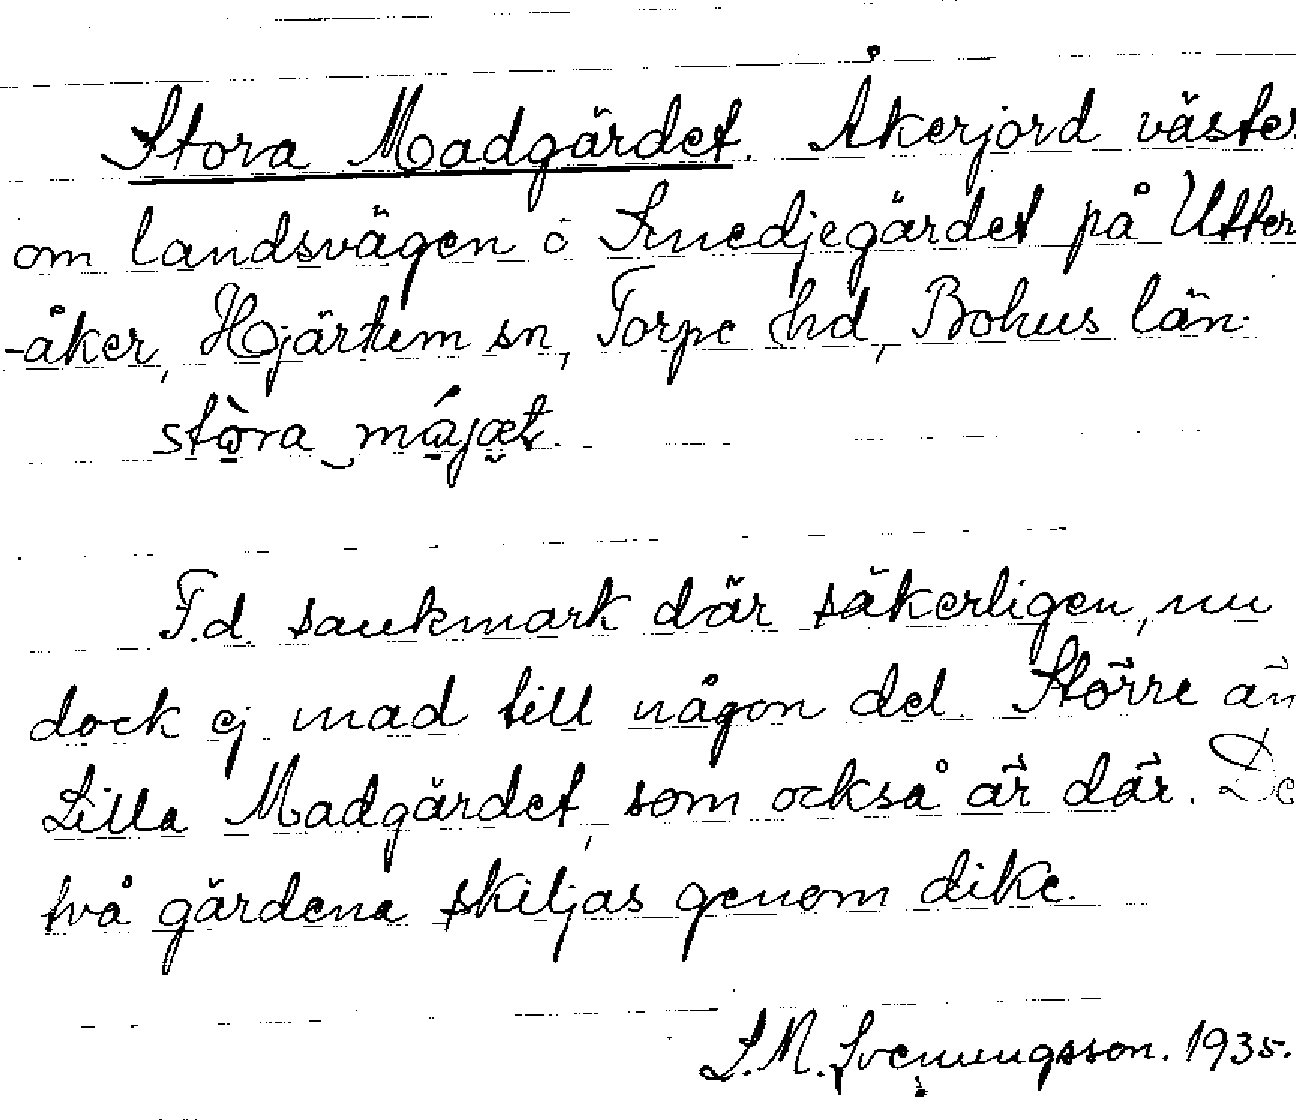 Stora Madgärdet. Åkerjord väster
om landsvägen ö Smedjegärdet på Utter
-åker, Hjärtum sn, Torpe hd, Bohus län.
stòra májæt.
F.d. sankmark där säkerligen, nu
dock ej mad till någon del. Större än
Lilla Madgärdet, som också är där. De
två gärdena skiljas genom dike.
S.M. Svenungsson. 1935.